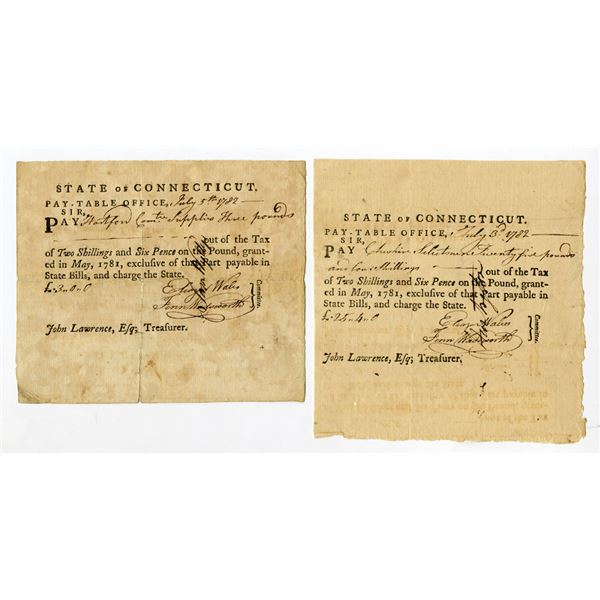 STATE OF CONNECTICUT.
PAY-TABLE OFFICE, July 5th 1782
SIR,
PAY Hartford Comtee Supplies Three pounds
out of the Tax
of Two Shillings and Six Pence on the Pound, grant-
ed in May, 1781, exclusive of that Part payable in
State Bills, and charge the State.
£ 3 0 0
Eleazr Wales
Fenn Wadsworth
Committee.
John Lawrence, Esq; Treasurer.
STATE OF CONNECTICUT.
PAY-TABLE OFFICE, July 1782
SIR,
PAY Cheshire Selectmen Twenty five pounds
and four Shillings
out of the Tax
of Two Shillings and Six Pence on the Pound, grant-
ed in May, 1781, exclusive of that Part payable in
State Bills, and charge the State.
£ 25 4 0
Eleazr Wales
Fenn Wadsworth
Committee.
John Lawrence, Esq; Treasurer.